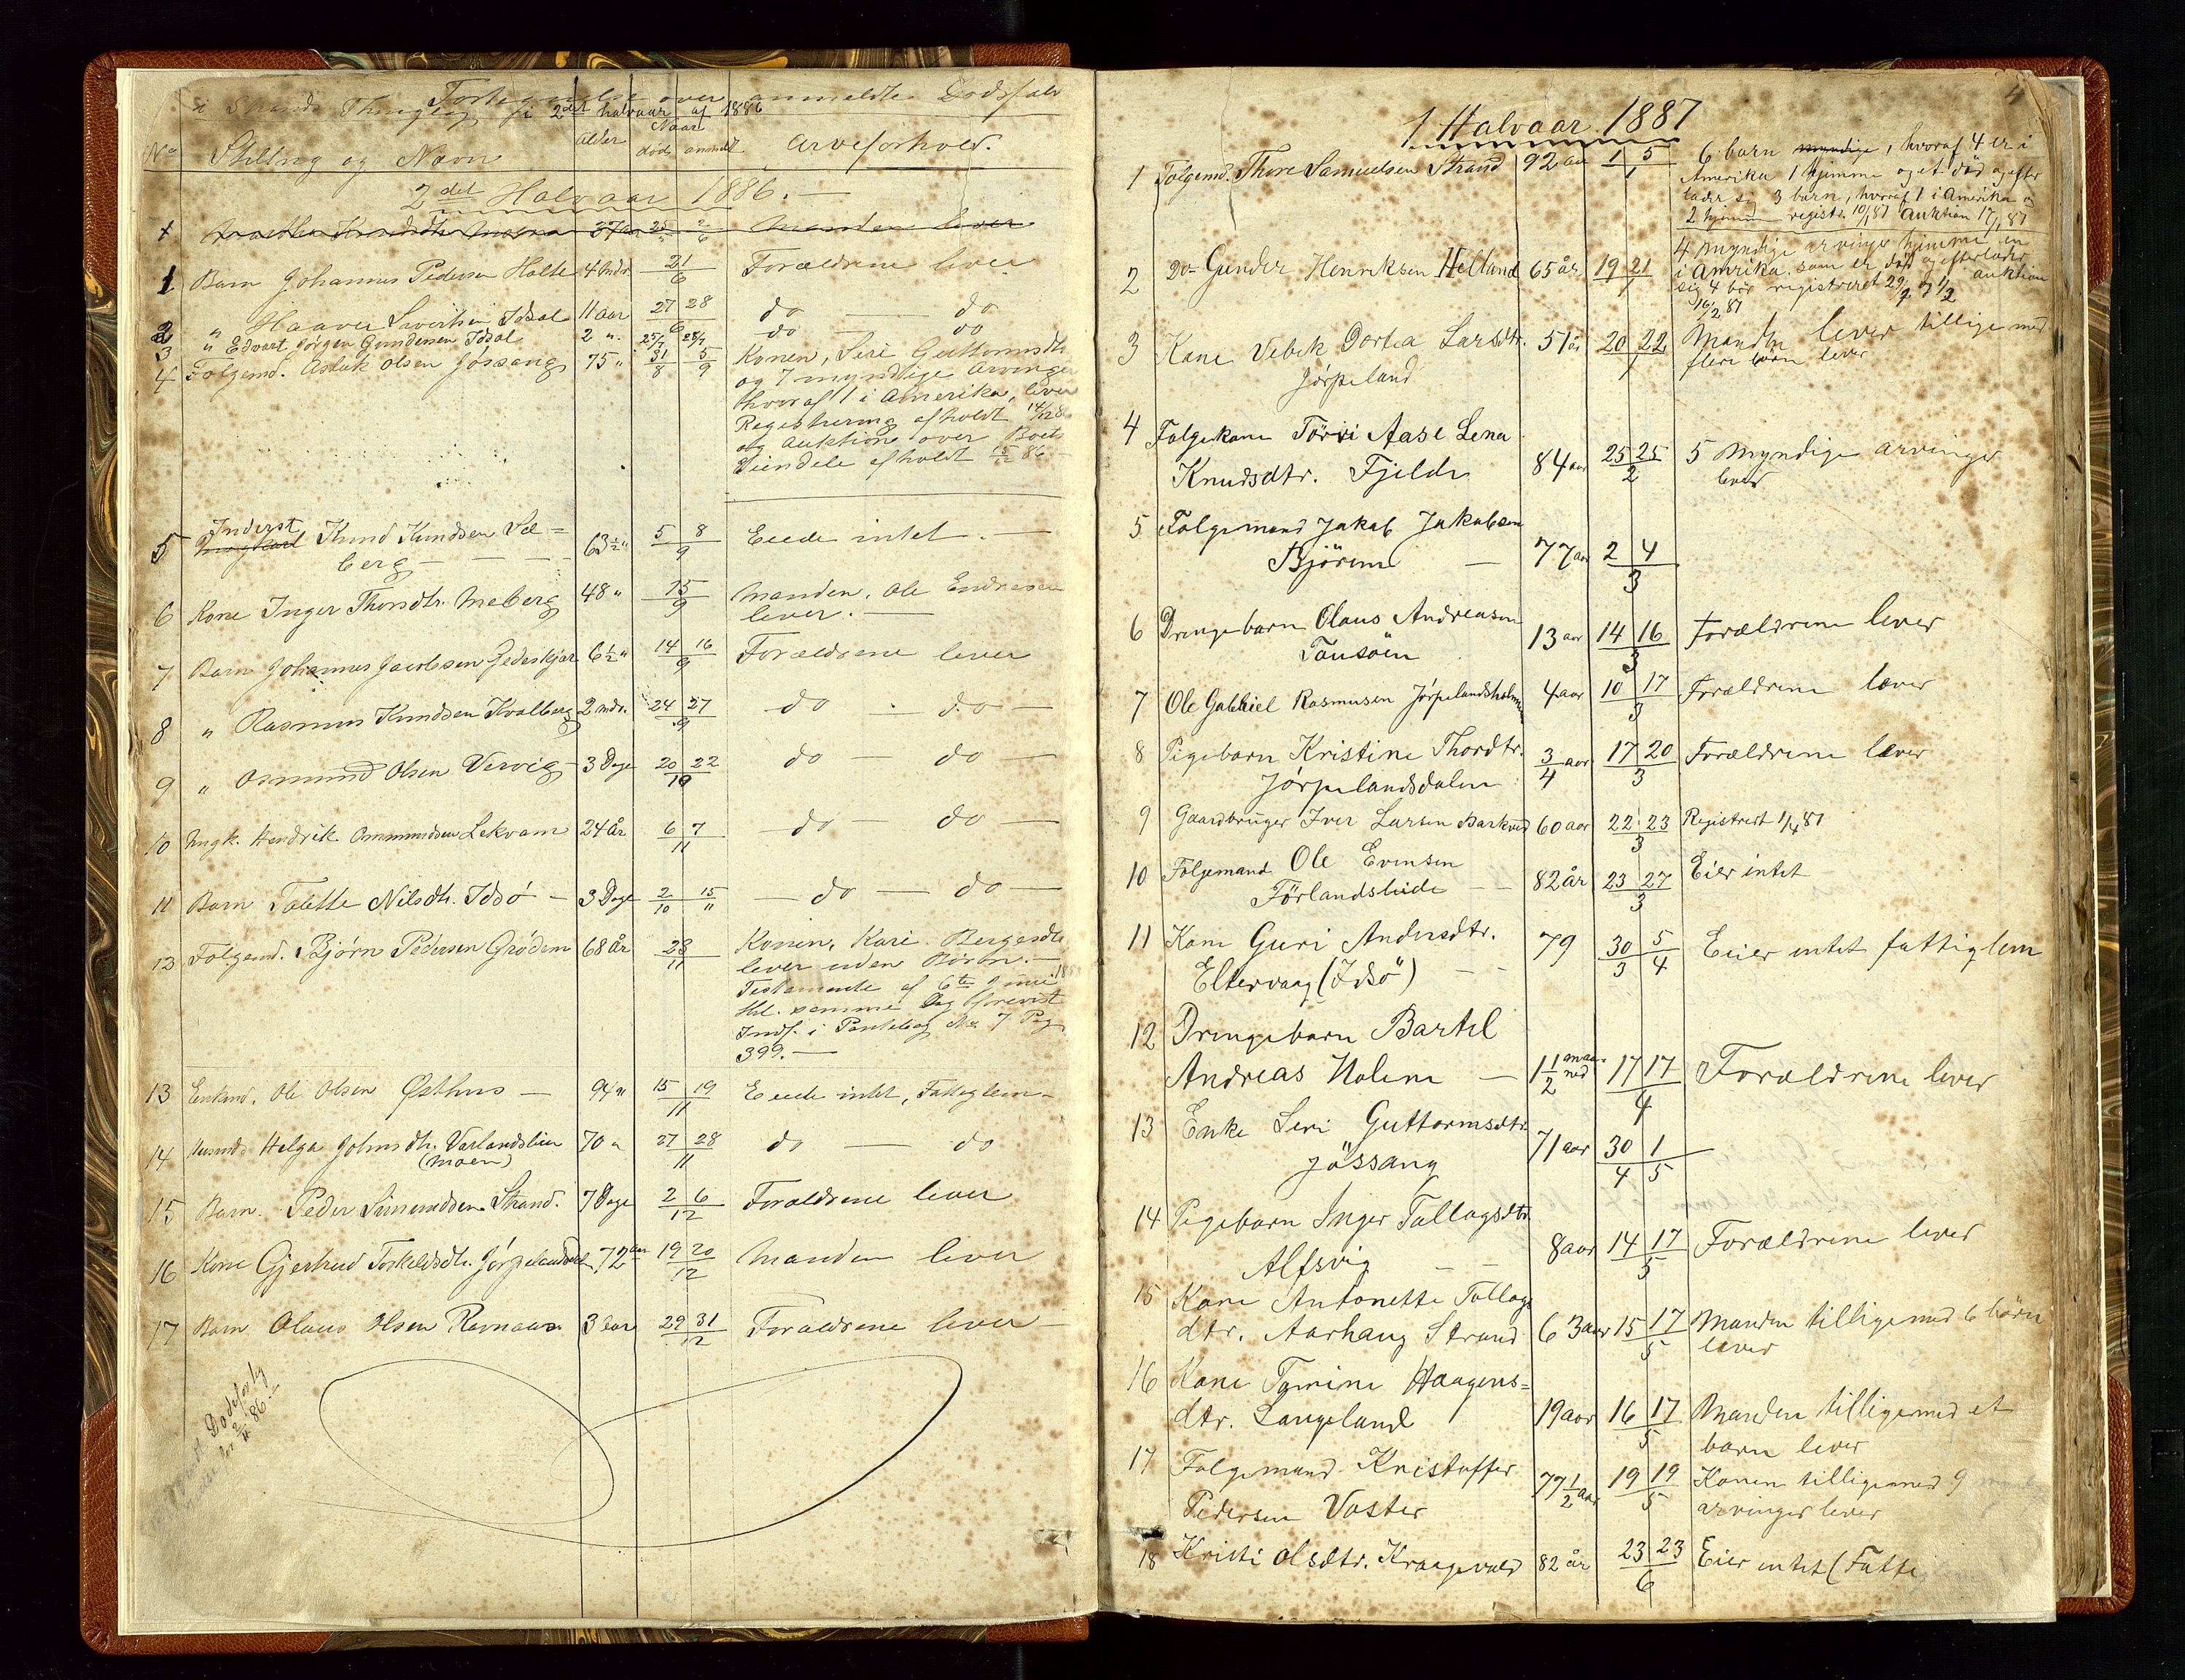 Fortegnelse over anmeldte Dødsfald
i Strands Thinglag i 2det halvaar af 1886
No Stilling og Navn Alder Naar død anmeldt Arveforhold.
2det Halvaar 1886.
1 37 aar 25 2/6 Manden lever
1 Barn Johannes Pedersen Holte 4 Mdr. 21/6 Forældrene lever
2 " Haaver Sivertsen Idsal 11 aar 27 28/6 do — do
3 " Edvart Jørgen Gundersen Idsal 2 " 25/7 28/7 do — do
4 Følgemd. Aslak Olsen Jøssang 75 " 31/8 5/9 Konen, Siri Guttormsdtr.
og 7 myndige Arvinger
hvoraf 1 i Amerika, lever
Registrering afholdt 14/12 8
og Auktion over Boets
Eiendele afholdt 86
5 Inderst
Ungkarl Knud Knudsen Sæ= 63 ½ " 5 8/9 Eiede intet. —
berg —
6 Kone Inger Thorsdtr. Meberg 48 " 15/9 Manden, Ole Endresen
lever. —
7 Barn Johannes Jacobsen Jedeskjær 6½ " 14 16/9 Forældrene lever
8 " Rasmus Knudsen Kvalberg 2 mdr. 24 27/9 do — do —
9 " Osmund Olsen Vervig 3 Dage 20 22/10 do — do —
10 Ungk. Hendrik Ommundsen Lekvam 24 år 6 7/11 do — do —
11 Barn Tolette Nilsdtr. Idsö — 3 Dage 2/10 15/" — do — do —
12 Følgemd. Bjørn Pedersen Grödem 68 år 23/11 Konen, Kari Bergesdtr.
lever uden Börn. —
Testamente af 6te Juni 18
thl. samme Dag forevist
Indf. i Pantebog No 7 Pag
399. —
13 Enkmd. Ole Olsen Østhus — 94 " 15 19/11 Eiede intet, Fattiglem —
14 Helga Johnsdtr. Vørlandslien 70 " 27 28/11 do — do
(Moen)
15 Barn. Peder Simundsen Strand. 7 Dage 2 6/12 Forældrene lever
16 Kone Gjertrud Torkildsdtr. Jörpelandsdal. 72 aar 19 20/12 Manden lever
17 Barn Olaus Olsen Ravnaas 3 aar 29 31/12 Forældrene lever —
4
1 Halvaar 1887
1 Følgemd. Thore Samuelsen Strand 92 aar 1 5/1 6 barn myndige, hvoraf 4 er i
Amerika 1 hjemme og et död og efter
lader sig 3 börn, hvoraf 1 i Amerika og
2 hjemme registr. 10/1 87 Auktion 17/1 87
2 Do- Gunder Henriksen Helland 65 år 19 21/1 4 myndige arvinger hjemme en
i Amrika som er död og efterlader
sig 4 bör registreret 29/1 og 1/2 auktion
16/2 87
3 Kone Vebek Dortea Larsdtr. 51 år 20 22/1 Manden lever tillige med
Jörpeland flere börn lever
4 Følgekone Törri Aase Lena
Knudsdtr. Fjelde 84 aar 25 25/2 5 Myndige arvinger
lever
5 Følgemand Jakob Jakobsen
Björeim — 77 aar 2 4/3
6 Drengebarn Olaus Andreasen
Tousöen 13 aar 14 16/3 Forældrene lever
7 Ole Gabriel Rasmusen Jörpelandsholmen 4 aar 10 17/3 Forældrene lever
8 Pigebarn Kristine Thordtr. 3/4 aar 17 20/3 Forældrene lever
Jörpelandsdalen
9 Gaardbruger Iver Larsen Barkved 60 aar 22 23/3 Registrert 1/4 87
10 Følgemand Ole Evensen
Förlandslide — 82 år 23 27/3 Eier intet
11 Kone Guri Andersdtr. 79 30/3 5/4 Eier intet fattiglem
Eltervaag (Idsö) —
12 Drengebarn Bartel
Andreas Holm — 1½ maaned 17 17/4 Forældrene lever
13 Enke Siri Guttormsdtr.
Jössang 71 aar 30/4 1/5 —
14 Pigebarn Inger Tallagsdtr.
Alfsvig — 8 aar 14 17/5 Forældrene lever
15 Kone Antonette Tollags
dtr. Aarhaug Strand 63 aar 15 17/5 Manden tilligemed 6 börn
lever
16 Kone Tomine Haagens=
dtr. Langeland 19 aar 16 17/5 Manden tilligemed et
barn lever
17 Følgemand Kristoffer
Pedersen Voster 77½ aar 19 19/5 Konen tilligemed 9
arvinger lever
18 Kristi Olsdtr. Kraagevold 82 år 23 23/6 Eier intet (Fatti